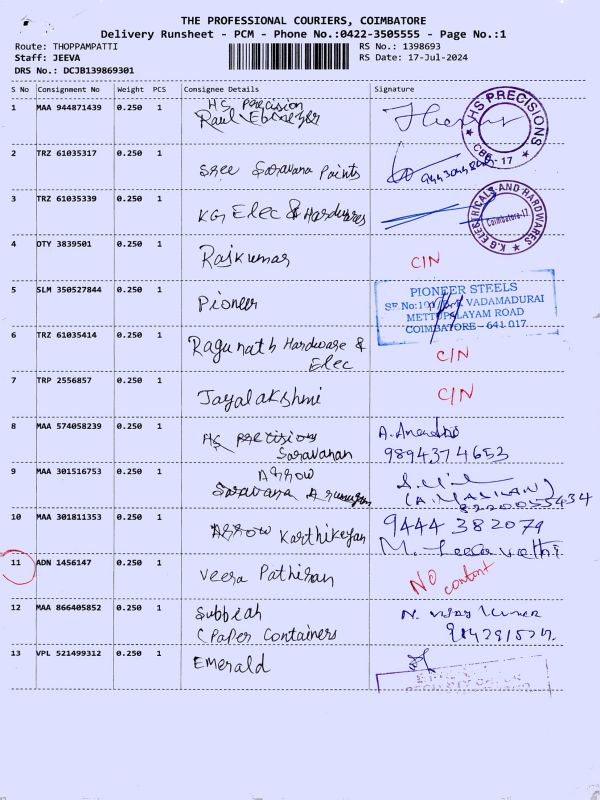 THE PROFESSIONAL COURIERS, COIMBATORE
Delivery Runsheet - PCM - Phone No.:0422-3505555 - Page No.:1
Route: THOPPAMPATTI
RS No.: 1398693
Staff: JEEVA
RS Date: 17-Jul-2024
DRS No.: DCJB139869301
S No Consignment No Weight PCS Consignee Details Signature
HS Precision
1 MAA 944871439 0.250 1 Raul Ebenezer
HS PRECISIONS
CBE - 17
2 TRZ 61035317 0.250 1
Sree Saravana Paints
3 TRZ 61035339 0.250 1
KG Elec & Hardwares
K.G ELECTRICALS AND HARDWARES
Coimbatore-17
4 OTY 3839501 0.250 1
Rajkumar C/N
5 SLM 350527844 0.250 1
Pioneer
PIONEER STEELS
VADAMADURAI
METTUPALAYAM ROAD
COIMBATORE - 641 017
6 TRZ 61035414 0.250 1
Ragunath Hardware &
Elec C/N
7 TRP 2556857 0.250 1
Jayalakshmi C/N
8 MAA 574058239 0.250 1
HS Precision
Saravanan
9894374653
9 MAA 301516753 0.250 1 Arrow
Saravana
8220055434
10 MAA 301811353 0.250 1
Arrow Karthikeyan
9444 382079
M. Leelavathi
11 ADN 1456147 0.250 1
Veera Pathiran
No
12 MAA 866405852 0.250 1
Subbiah
C Paper Containers
N. Vijay Kumar
13 VPL 521499312 0.250 1
Emerald